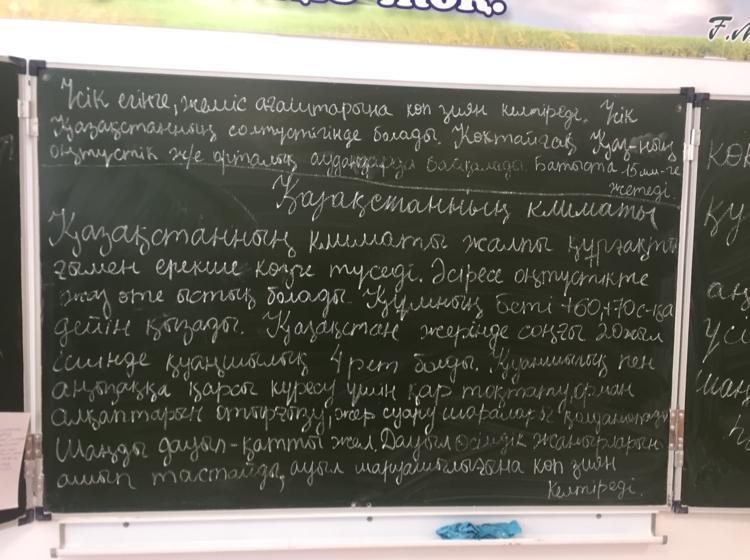 Үсік егінге, жеміс ағаштарына көп зиян келтіреді. Үсік
Қазақстанның солтүстігінде болады. Көктайғақ Қаз-ның
оңтүстік ж/е орталық аудандарда байқалады. Батыста 15 мм-ге
жетеді.
Қазақстанның климаты
Қазақстанның климаты жалпы құрғақты
ғымен ерекше көзге түседі. Әсіресе оңтүстікте
жаз өте ыстық болады. Құмның беті +60, +70 с-қа
дейін қызады. Қазақстан жерінде соңғы 20 жыл
ішінде қуаңшылық 4 рет болды. Қуаншылық пен
аңызаққа қарсы күресу үшін қар тоқтату, орман
алқаптарын отырғызу, жер суару шаралары
Шаңды дауыл-қатты жел. Дауыл өсімдік
ашып тастайды, ауыл шаруашылығына көп зиян
келтіреді.